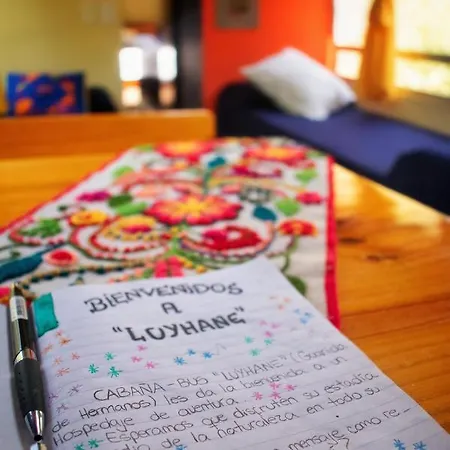 BIENVENIDOS
A
"LUYHANE"
CABAÑA-BUS "LUYHANE" (
de Hermanos) les da la bienvenida a un
Hospedaje de aventura.
Esperamos que disfruten su estadía
de la naturaleza en todo su
mensaje como re